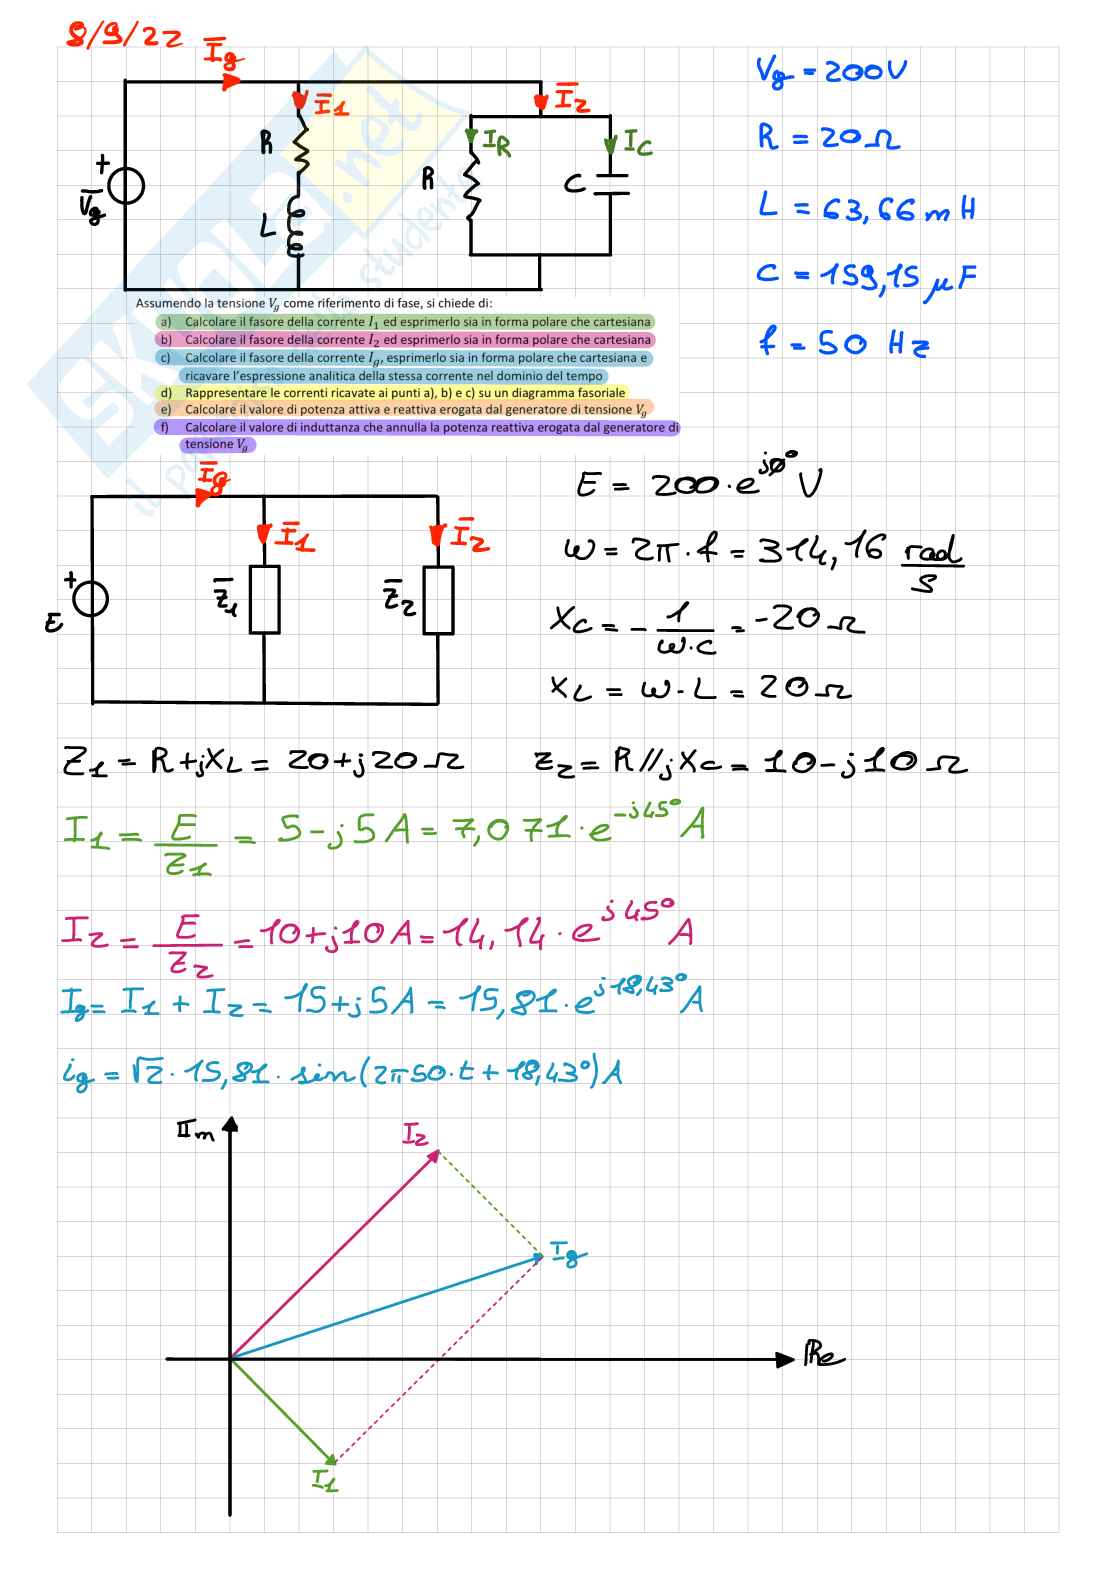 8/9/22
I̅g
Vg = 200V
I̅1
I̅2
R
IR
IC
R = 20Ω
+
V̅g
R
C
L
L = 63,66 mH
C = 159,15 μF
f = 50 Hz
Assumendo la tensione Vg come riferimento di fase, si chiede di:
a) Calcolare il fasore della corrente I1 ed esprimerlo sia in forma polare che cartesiana
b) Calcolare il fasore della corrente I2 ed esprimerlo sia in forma polare che cartesiana
c) Calcolare il fasore della corrente Ig, esprimerlo sia in forma polare che cartesiana e
ricavare l'espressione analitica della stessa corrente nel dominio del tempo
d) Rappresentare le correnti ricavate ai punti a), b) e c) su un diagramma fasoriale
e) Calcolare il valore di potenza attiva e reattiva erogata dal generatore di tensione Vg
f) Calcolare il valore di induttanza che annulla la potenza reattiva erogata dal generatore di
tensione Vg
SKUOLA.net
I̅g
I̅1
I̅2
+
E
Z̅1
Z̅2
E = 200·e^j0° V
ω = 2π·f = 314,16 rad/s
XC = -1/(ω·C) = -20Ω
XL = ω·L = 20Ω
Z1 = R+jXL = 20+j20Ω
Z2 = R//jXC = 10-j10Ω
I1 = E/Z1 = 5-j5A = 7,071·e^-j45° A
I2 = E/Z2 = 10+j10A = 14,14·e^j45° A
Ig = I1 + I2 = 15+j5A = 15,81·e^j18,43° A
ig = √2·15,81·sin(2π50·t+18,43°)A
Im
I2
Ig
Re
I1